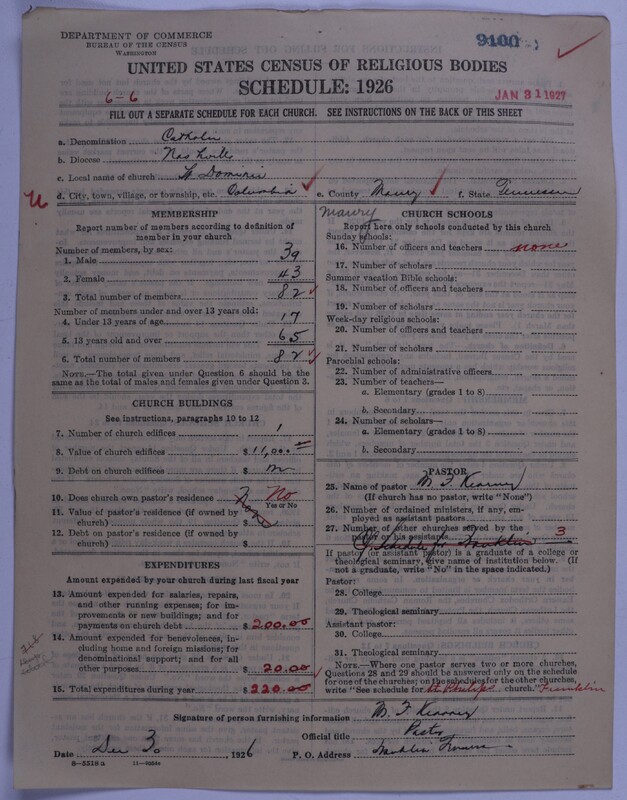 DEPARTMENT OF COMMERCE
BUREAU OF THE CENSUS
WASHINGTON
9100
UNITED STATES CENSUS OF RELIGIOUS BODIES
SCHEDULE: 1926
6-6
JAN 31 1927
FILL OUT A SEPARATE SCHEDULE FOR EACH CHURCH. SEE INSTRUCTIONS ON THE BACK OF THIS SHEET
a. Denomination Catholic
b. Diocese Nashville
c. Local name of church St Dominic
d. City, town, village, or township, etc. Columbia e. County Maury f. State Tennessee
Maury
MEMBERSHIP
Report number of members according to definition of
member in your church
Number of members, by sex:
1. Male 39
2. Female 43
3. Total number of members 82
Number of members under and over 13 years old:
4. Under 13 years of age 17
5. 13 years old and over 65
6. Total number of members 82
NOTE.—The total given under Question 6 should be
same as the total of males and females given under Question 3.
CHURCH BUILDINGS
See instructions, paragraphs 10 to 12
7. Number of church edifices 1
8. Value of church edifices $11,000
9. Debt on church edifices $ no
10. Does church own pastor's residence No
Yes or No
11. Value of pastor's residence (if owned by
church) $ None
12. Debt on pastor's residence (if owned by
church) $
EXPENDITURES
Amount expended by your church during last fiscal year
13. Amount expended for salaries, repairs,
and other running expenses; for im-
provements or new buildings; and for
payments on church debt $200.00
14. Amount expended for benevolences, in-
cluding home and foreign missions; for
denominational support; and for all
other purposes $20.00
15. Total expenditures during year $220.00
CHURCH SCHOOLS
Report here only schools conducted by this church
Sunday schools:
16. Number of officers and teachers none
17. Number of scholars
Summer vacation Bible schools:
18. Number of officers and teachers
19. Number of scholars
Week-day religious schools:
20. Number of officers and teachers
21. Number of scholars
Parochial schools:
22. Number of administrative officers
23. Number of teachers—
a. Elementary (grades 1 to 8)
b. Secondary
24. Number of scholars—
a. Elementary (grades 1 to 8)
b. Secondary
PASTOR
25. Name of pastor M. F. Kearney
(If church has no pastor, write "None")
26. Number of ordained ministers, if any, em-
ployed as assistant pastors
27. Number of other churches served by the
pastor or his assistants 3
Schedule for Franklin
If pastor (or assistant pastor) is a graduate of a college or
theological seminary, give name of institution below. (If
not a graduate, write "No" in the space indicated.)
Pastor:
28. College
29. Theological seminary
Assistant pastor:
30. College
31. Theological seminary
NOTE.—Where one pastor serves two or more churches,
Questions 28 and 29 should be answered only on the schedule
for one of the churches; on the schedules for the other churches,
write "See schedule for St Philips church." Franklin
Signature of person furnishing information M. F. Kearney
Official title Pastor
Date Dec 30, 1926 P. O. Address Franklin Tennessee
8-5518 a